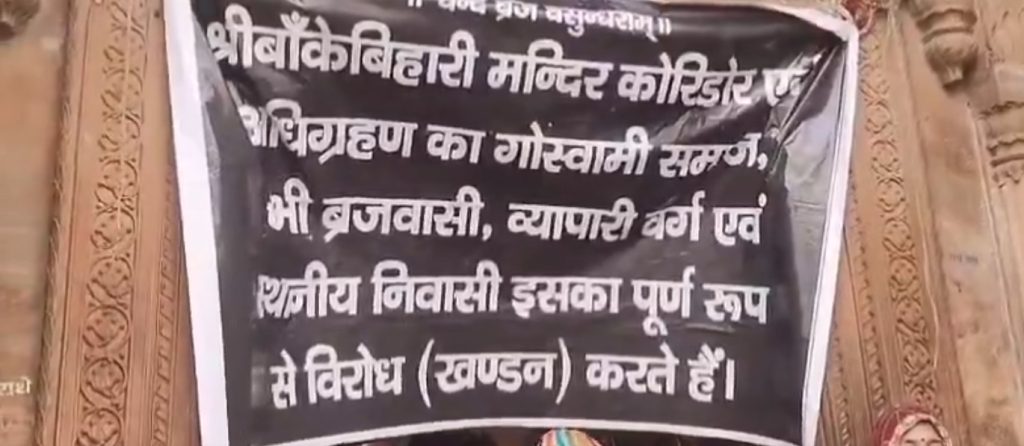 ॥ वन्दे ब्रज वसुन्धराम् ॥
श्रीबाँकेबिहारी मन्दिर कोरिडोर एवं
अधिग्रहण का गोस्वामी समाज,
भी ब्रजवासी, व्यापारी वर्ग एवं
स्थानीय निवासी इसका पूर्ण रूप
से विरोध (खण्डन) करते हैं।